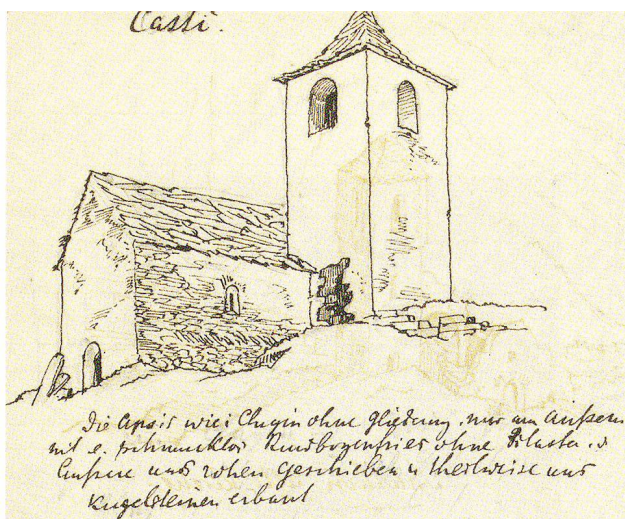 Casti.
Die Apsis wie i Clugin ohne Gliederung. nur am Äußern
mit e. schmucklos Rundbogenfries ohne Pilaster. d
Äußere aus rohen Geschieben u theilweise aus
Kugelsteinen erbaut